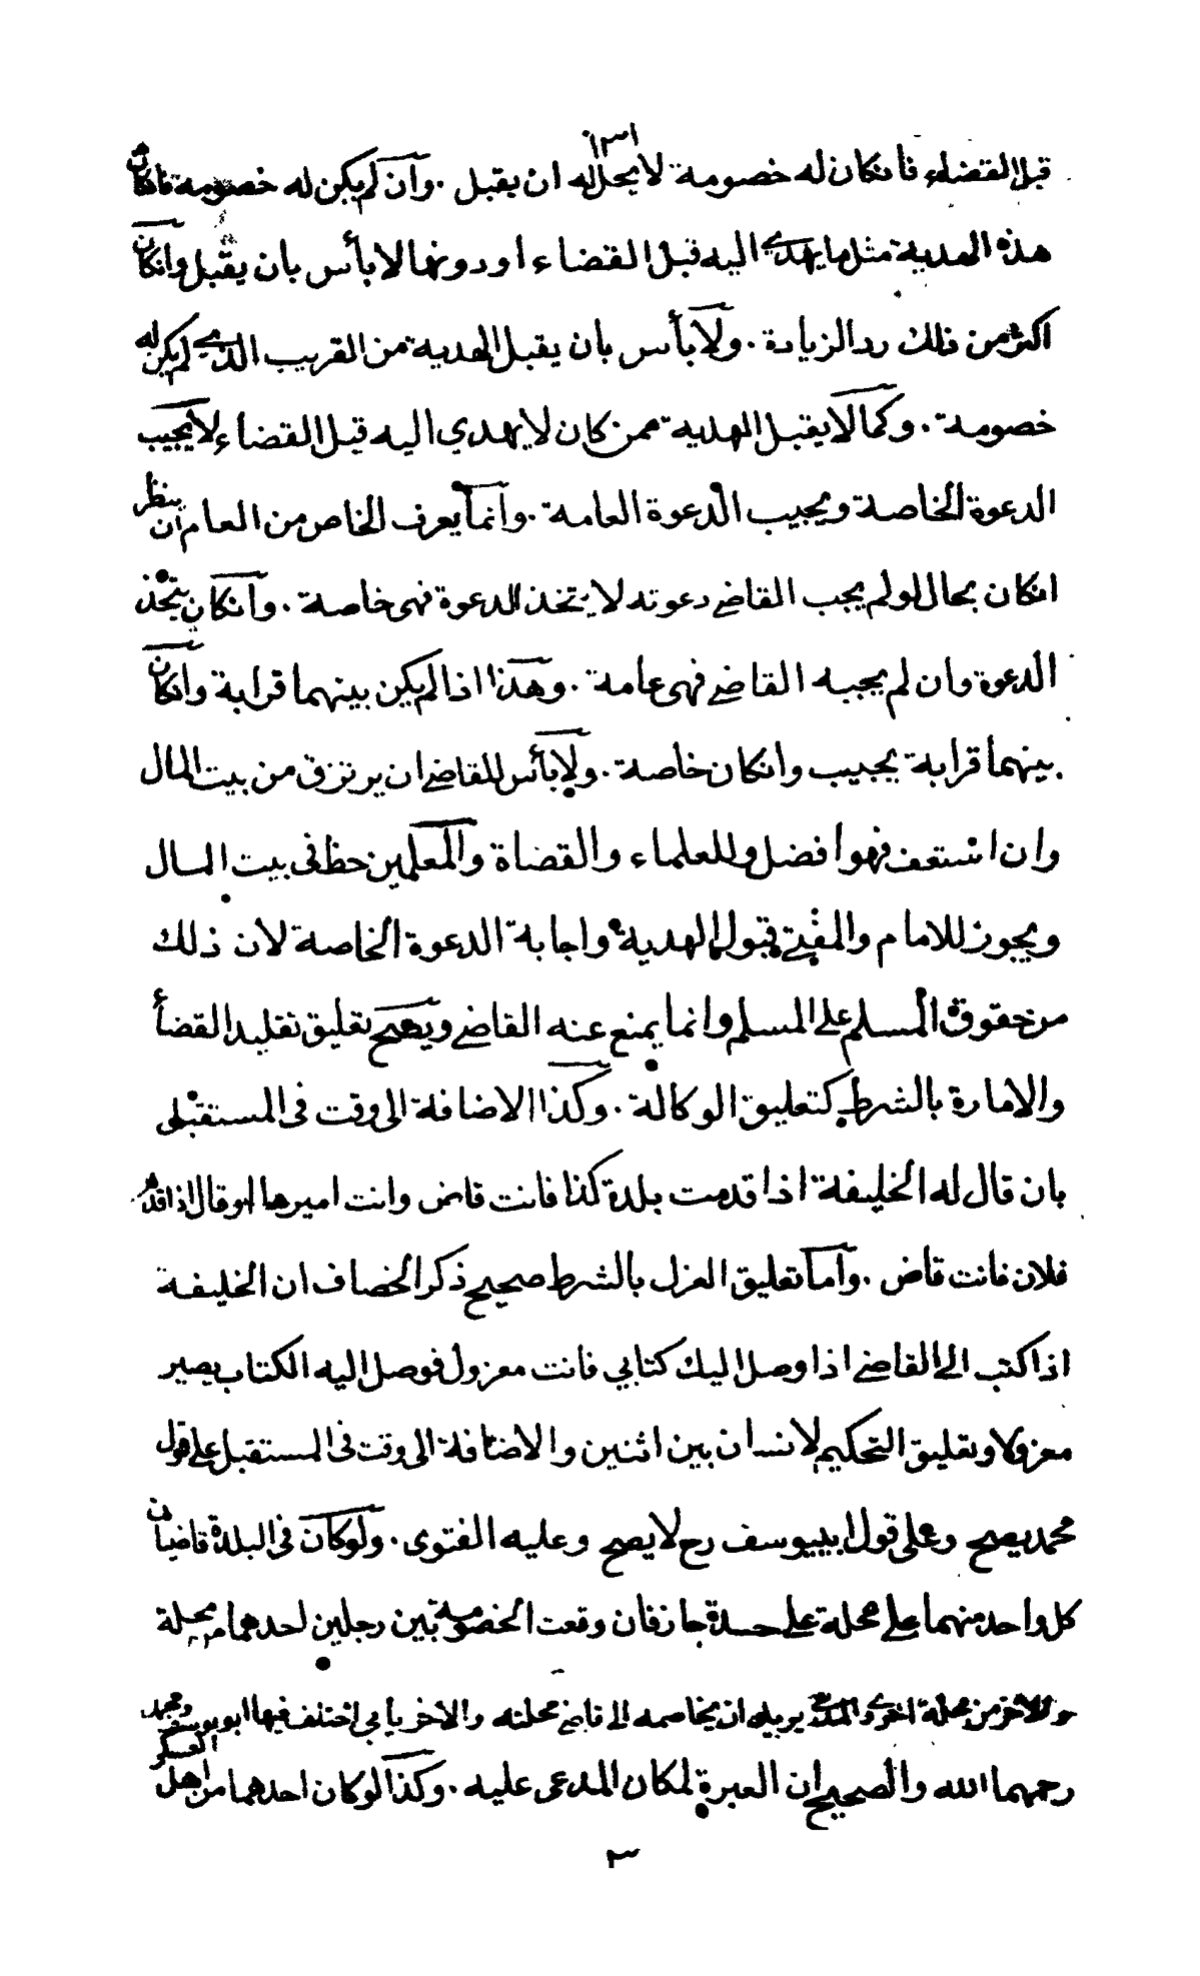 ١٣١
قبل القضاء فانكان له خصومة لا يحل له ان يقبل . وان لم يكن له خصومة فانكان
هذه الهدية مثل ما يهدى اليه قبل القضاء او دونها لا بأس بان يقبل وانكان
اكثر من ذلك رد الزيادة . ولا بأس بان يقبل الهدية من القريب الذى لم يكن له
خصومة . وكما لا يقبل الهدية ممن كان لا يهدي اليه قبل القضاء لا يجيب
الدعوة الخاصة ويجيب الدعوة العامة . وانما يعرف الخاص من العام ان ينظر
انكان بحال لو لم يجب القاضى دعوته لا يتخذ الدعوة فهى خاصة . وانكان يتخذ
الدعوة وان لم يجبه القاضى فهى عامة . وهذا اذا لم يكن بينهما قرابة وانكان
بينهما قرابة يجيب وانكان خاصة . ولا بأس للقاضى ان يرتزق من بيت المال
وان استعف فهو افضل وللعلماء والقضاة والمعلمين حظ فى بيت المال
ويجوز للامام والمفتى قبول الهدية واجابة الدعوة الخاصة لان ذلك
من حقوق المسلم على المسلم وانما يمنع عنه القاضى ويصح تعليق تقليد القضأ
والامارة بالشرط كتعليق الوكالة . وكذا الاضافة الى وقت فى المستقبل
بان قال له الخليفة اذا قدمت بلدة كذا فانت قاض وانت اميرها او قال اذا قدم
فلان فانت قاض . واما تعليق العزل بالشرط صحيح ذكر الخصاف ان الخليفة
اذا كتب الى القاضى اذا وصل اليك كتابي فانت معزول فوصل اليه الكتاب يصير
معزولا وتعليق التحكيم لانسان بين اثنين والاضافة الى وقت فى المستقبل على قول
محمد يصح وعلى قول ابييوسف رح لا يصح وعليه الفتوى . ولو كان فى البلدة قاضيان
كل واحد منهما على محلة على حدة جاز فان وقعت الخصومة بين رجلين احدهما من محلة
والآخر من محلة اخرى والمدعى يريد ان يخاصمه الى قاضى محلته والاخر يأبى اختلف فيها ابو يوسف ومحمد
رحمهما الله والصحيح ان العبرة لمكان المدعى عليه . وكذا لو كان احدهما من اهل العسكر
٣